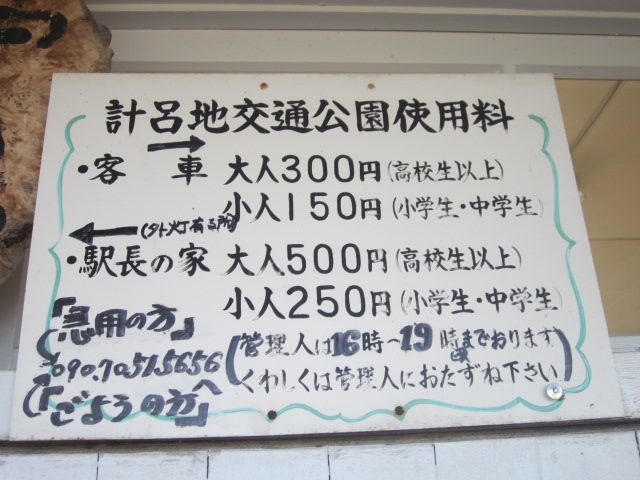 計呂地交通公園使用料
・客車 大人300円(高校生以上)
小人150円(小学生・中学生)
(外灯有る所)
・駅長の家 大人500円(高校生以上)
小人250円(小学生・中学生)
「急用の方」
090.7051.5656
「ごようの方」へ
(管理人は16時〜19時までおります
くわしくは管理人におたずね下さい)